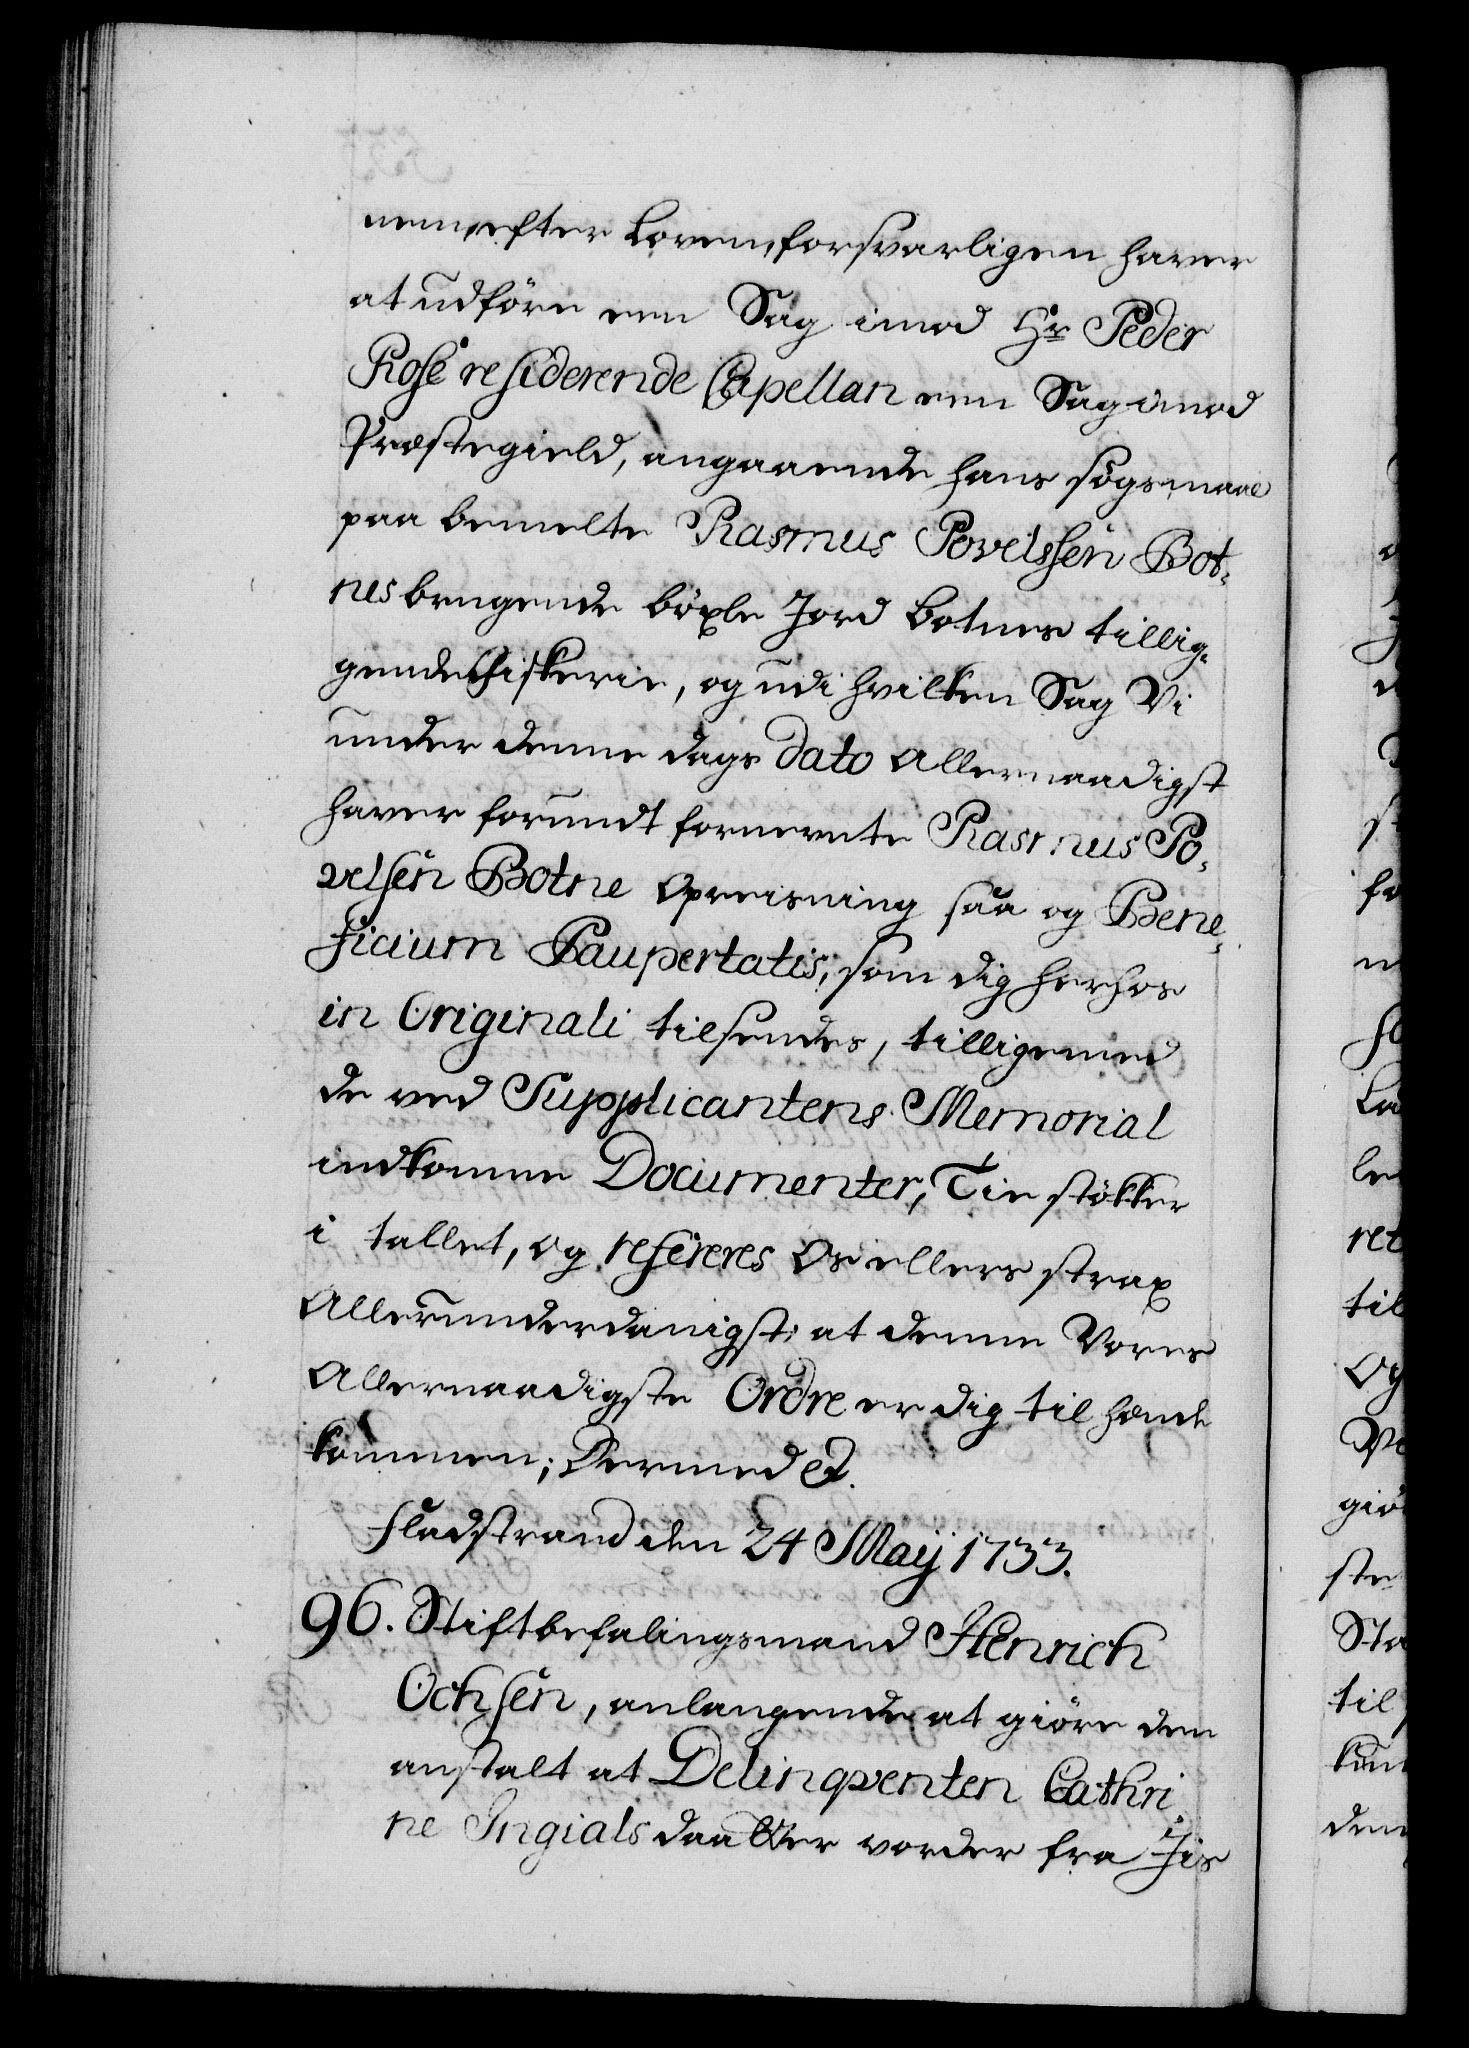 nem, efter Loven, forsvarligen haver
at udføre een Sag imod Hr Peder
Rose residerende Capellan een Sag imod
Præstegield, angaaende hans søgsmaal
paa bemelte Rasmus Povelssen Bot-
nes brugende böxle Jord Botnes tillig-
gende Fiskerie, og udi hvilken Sag Vi
under denne dags dato Allernaadigst
haver forundt fornevnte Rasmus Po-
velsen Botne Opreisning saa og Bene-
ficium Paupertatis, som dig herhos
in Originali tilsendes, tilligemed
de ved Supplicantens Memorial
indkomne Documenter, Tie stökker
i tallet, og refereres Os ellers strax
Allerunderdanigst, at denne Vores
Allernaadigste Ordre er dig til hænde
kommen; Dermed &.
Fladstrand den 24 Maij 1733.
96. Stiftbefalingsmand Henrich
Ochsen, anlangende at giöre den
anstalt at Delinqventen Cathri-
ne Ingials daatter vorder fra Jis